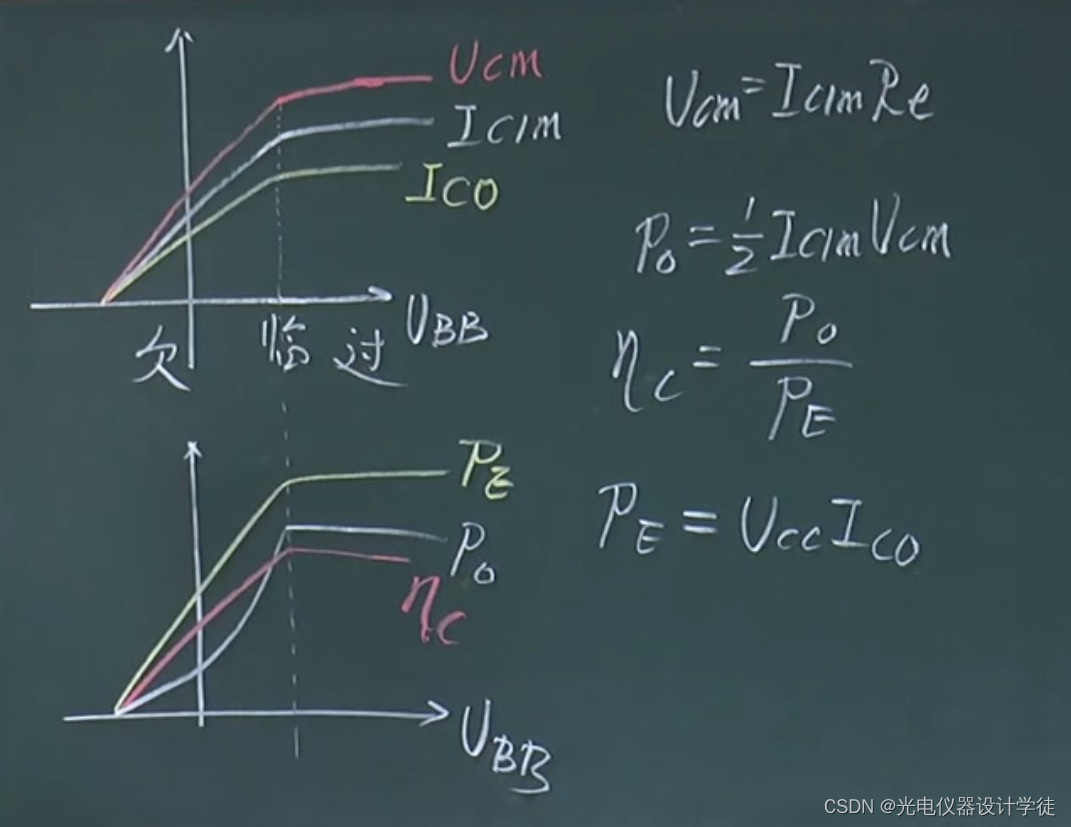 Ucm
Ic1m
Ico
UBB
欠 临 过
Ucm=Ic1mRe
Po=1/2Ic1mUcm
ηc=Po/PE
PE=UccIco
PE
Po
ηc
UBB
CSDN @光电仪器设计学徒